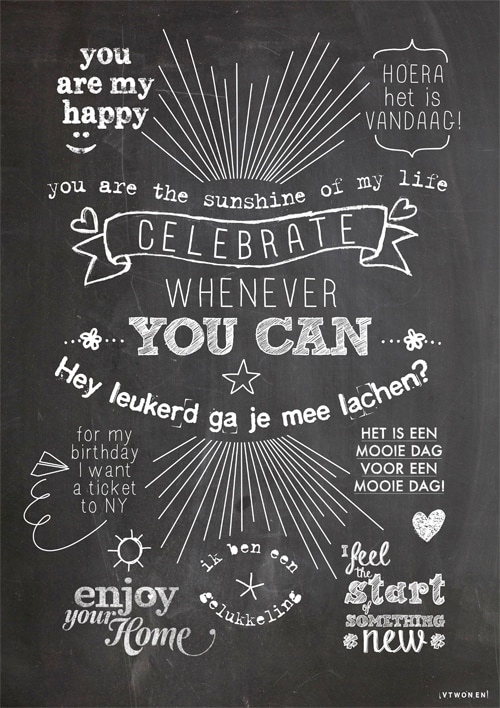 you
are my
happy
HOERA
het is
VANDAAG!
you are the sunshine of my life
CELEBRATE
WHENEVER
YOU CAN
Hey leukerd ga je mee lachen?
for my
birthday
I want
a ticket
to NY
HET IS EEN
MOOIE DAG
VOOR EEN
MOOIE DAG!
enjoy
your Home
ik ben een
gelukkeling
I feel
the
start
of
SOMETHING
new
[VTWONEN]